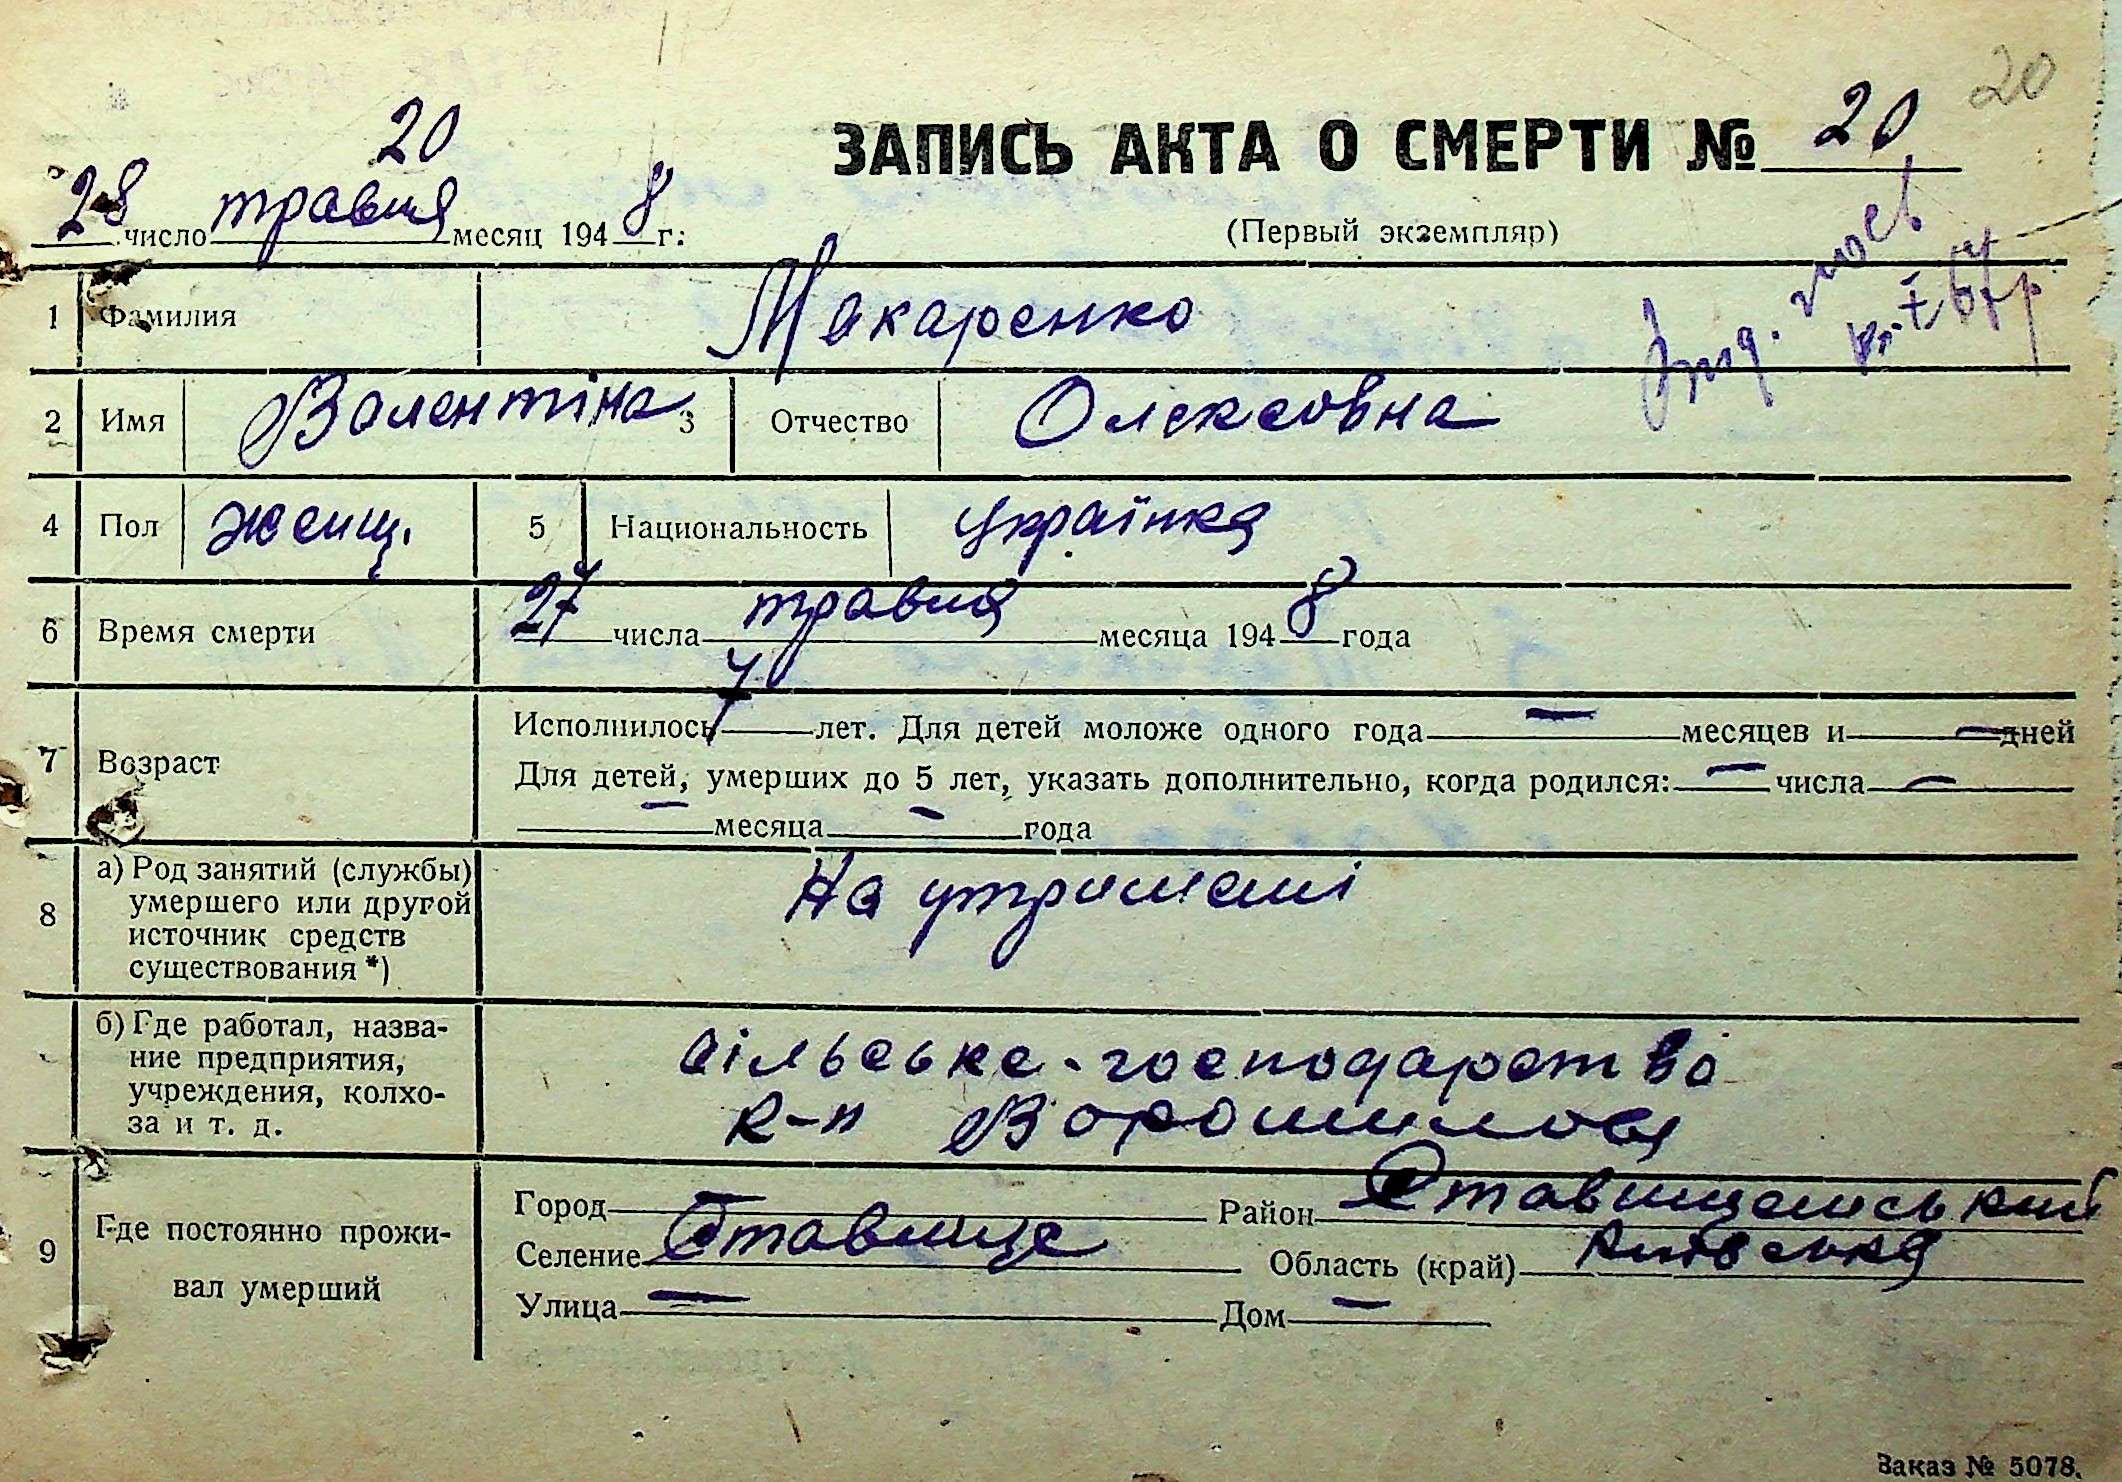 20
ЗАПИСЬ АКТА О СМЕРТИ № 20
20
28 число травня месяц 1948 г.
(Первый экземпляр)
1 Фамилия Макаренко
2 Имя Валентіна 3 Отчество Олексеовна
4 Пол женщ. 5 Национальность українка
6 Время смерти 27 числа травня месяца 1948 года
7 Возраст
Исполнилось 7 лет. Для детей моложе одного года — месяцев и — дней
Для детей, умерших до 5 лет, указать дополнительно, когда родился: — числа —
— месяца — года
8 а) Род занятий (службы) умершего или другой источник средств существования *)
На утримані
б) Где работал, назва-
ние предприятия,
учреждения, колхо-
за и т. д.
сільське-господарство
к-п Ворошилова
9 Где постоянно прожи-
вал умерший
Город — Район Ставищенський
Селение Ставище Область (край) Київська
Улица — Дом —
Заказ № 5078.